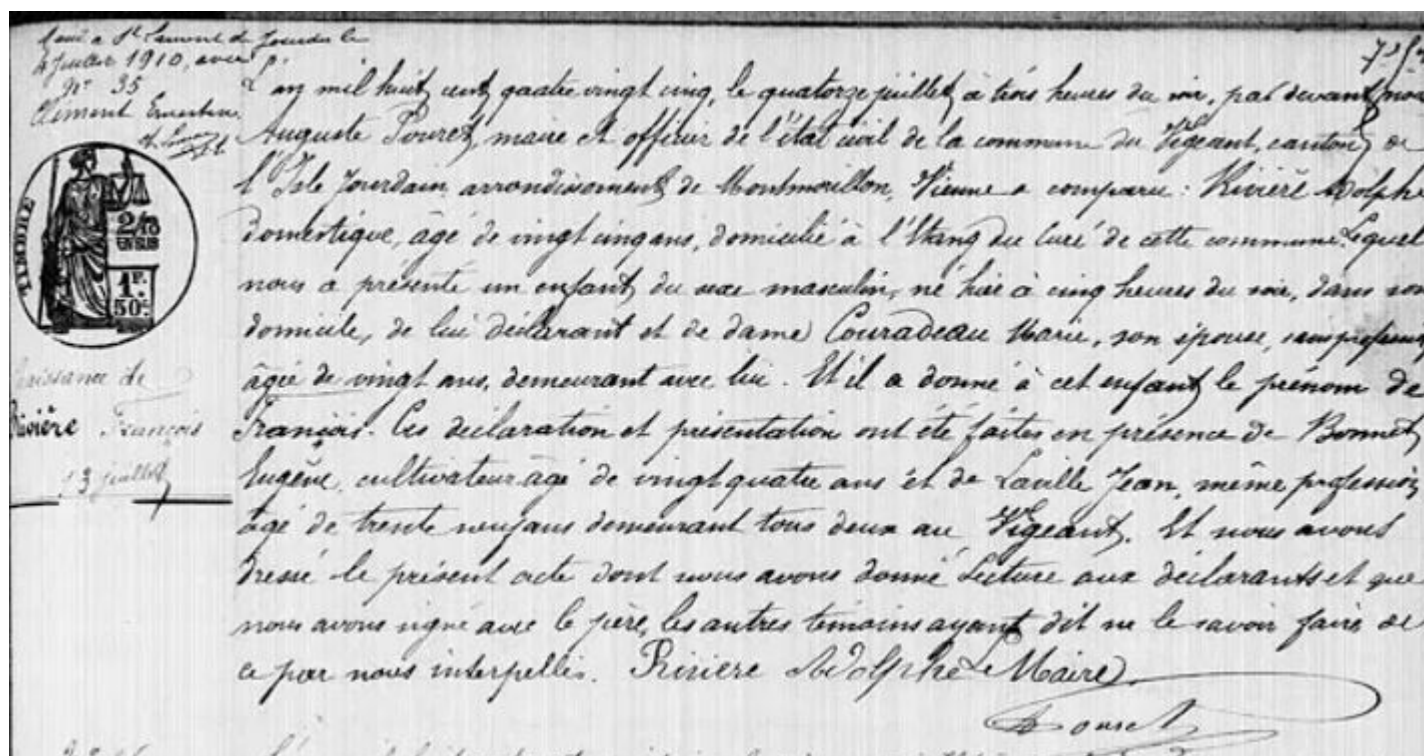 juillet 1910, avec
N° 35
Clément Ernestine
TIMBRE
2/10
EN SUS
1F.
50c.
Naissance de
Rivière François
13 juillet
L'an mil huit cent quatre vingt cinq, le quatorze juillet à trois heures du soir, par devant nous
Auguste Pouret, maire et officier de l'état civil de la commune du Vigeant, canton de
l'Isle Jourdain arrondissement de Montmorillon, Vienne a comparu : Rivière Adolphe
domestique, âgé de vingt cinq ans, domicilié à l'Etang du Curé de cette commune. Lequel
nous a présenté un enfant du sexe masculin, né hier à cinq heures du soir, dans son
domicile, de lui déclarant et de dame Couradeau Marie, son épouse, sans profession
âgée de vingt ans, demeurant avec lui. Et il a donné à cet enfant le prénom de
François. Ces déclaration et présentation ont été faites en présence de Bonnet
Eugène, cultivateur âgé de vingt quatre ans et de Laville Jean, même profession,
âgé de trente neuf ans demeurant tous deux au Vigeant. Et nous avons
dressé le présent acte dont nous avons donné lecture aux déclarants et que
nous avons signé avec le père, les autres témoins ayant dit ne le savoir faire de
ce par nous interpellés. Rivière Adolphe Le Maire
Pouret